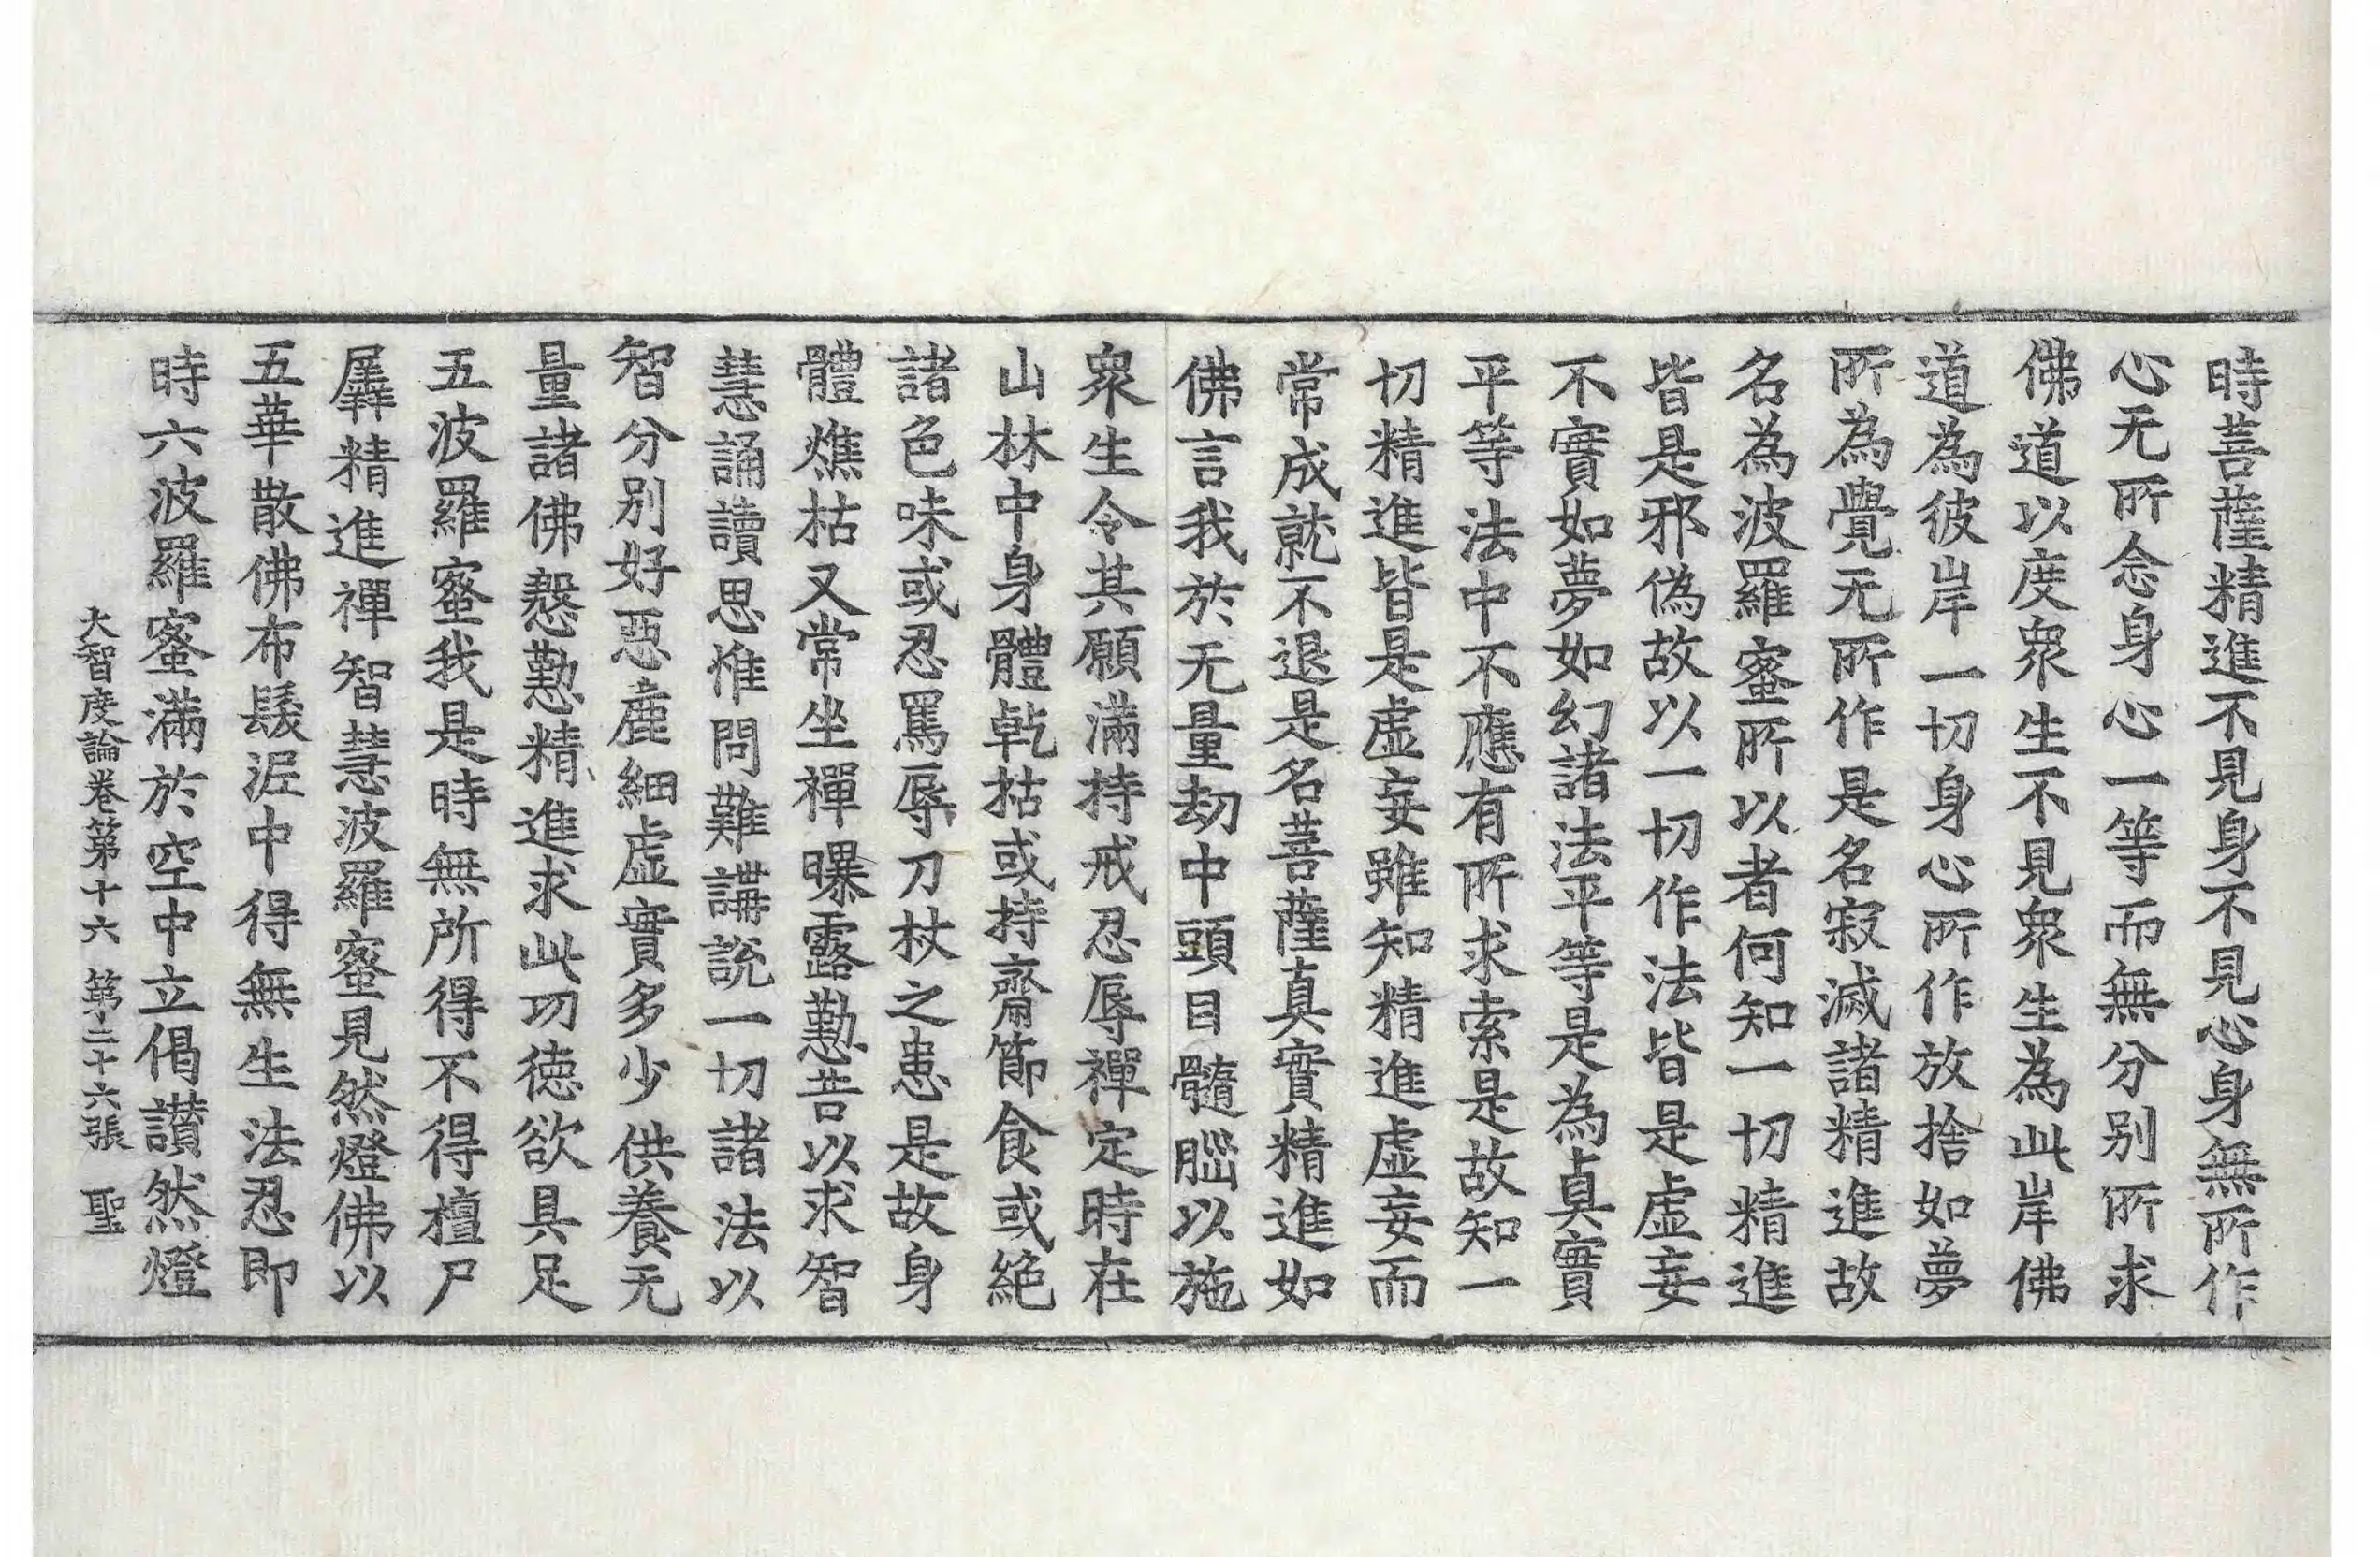 時菩薩精進不見身不見心身無所作
心无所念身心一等而無分别所求
佛道以度衆生不見衆生為此岸佛
道為彼岸一切身心所作放捨如夢
所為覺无所作是名寂滅諸精進故
名為波羅蜜所以者何知一切精進
皆是邪偽故以一切作法皆是虛妄
不實如夢如幻諸法平等是為真實
平等法中不應有所求索是故知一
切精進皆是虛妄雖知精進虛妄而
常成就不退是名菩薩真實精進如
佛言我於无量劫中頭目髓腦以施
衆生令其願滿持戒忍辱禪定時在
山林中身體乹枯或持齋節食或絕
諸色味或忍罵辱刀杖之患是故身
體燋枯又常坐禪曝露懃苦以求智
慧誦讀思惟問難講説一切諸法以
智分别好惡麁細虛實多少供養无
量諸佛慇懃精進求此功徳欲具足
五波羅蜜我是時無所得不得檀尸
羼精進禪智慧波羅蜜見然燈佛以
五華散佛布髮泥中得無生法忍即
時六波羅蜜滿於空中立偈讃然燈
大智度論卷第十六 第二十六張 聖